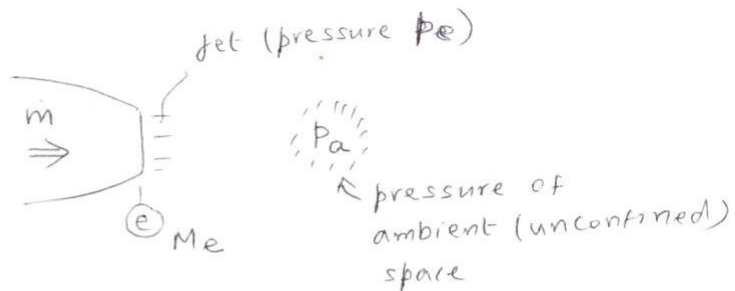 jet (pressure pe)
ṁ
Pa
pressure of
ambient (unconfined)
space
e Me